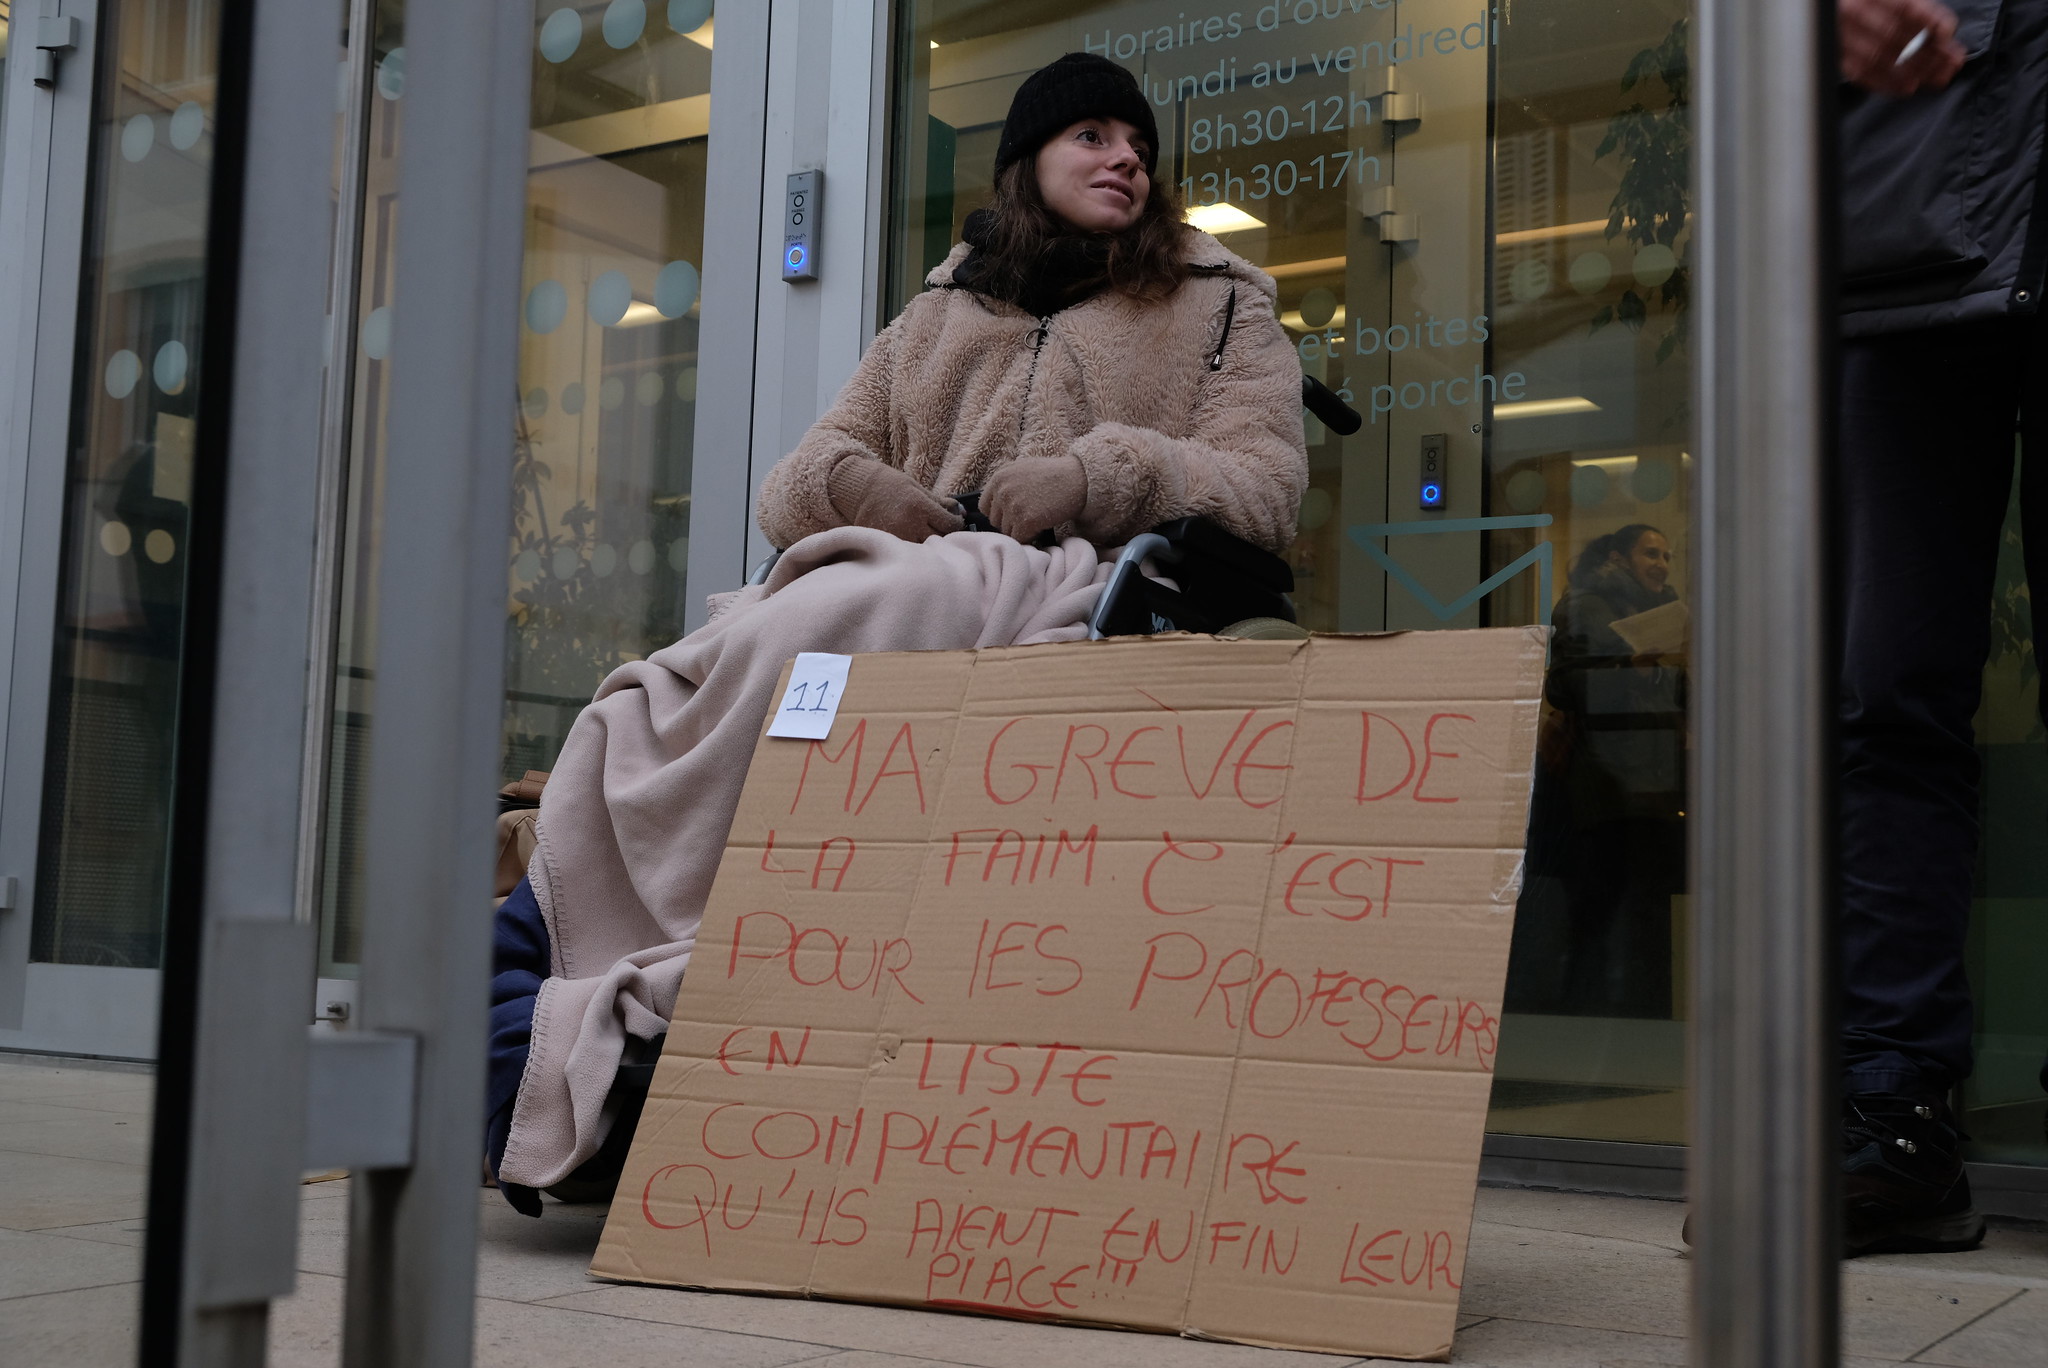 Horaires d'ouver
lundi au vendredi
8h30-12h
13h30-17h
et boites
é porche
11
MA GRÈVE DE
LA FAIM C'EST
POUR LES PROFESSEURS
EN LISTE
COMPLÉMENTAIRE
QU'ILS AIENT ENFIN LEUR
PLACE!!!